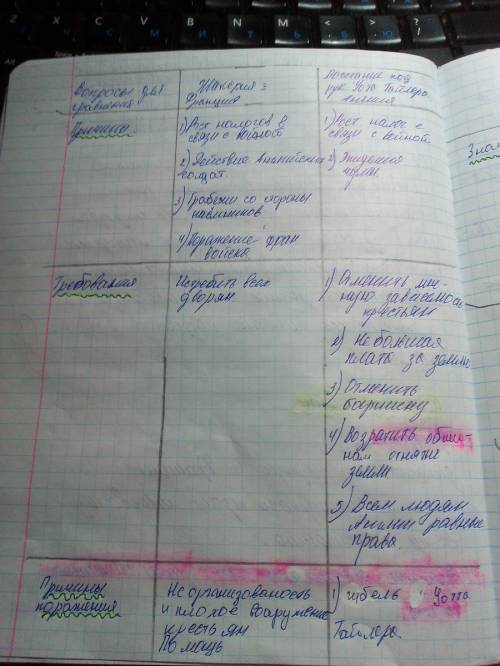 Вопросы для
сравнения
Жакерия
Франция
Восстание под
рук Уота Тайлера
Англия
Причины.
1) Рост налогов в
связи с войной
2) Действие Английских
солдат
3) Грабежи со стороны
наёмников
4) Поражение фран
войска
1) Рост налог в
связи с войной
2) Эпидемия
чумы
Требования
Истребить всех
дворян
1) Отменить лич-
ную зависимость
крестьян
2) Небольшая
плата за землю
3) Отменить
барщину
4) Возратить общи-
нам отнятые
земли
5) Всем людям
Англии равные
права.
Причины
поражения
Не организованость
и плохое вооружение
крестьян
Помощь
1) гибель Уотта
Тайлера.
Знач